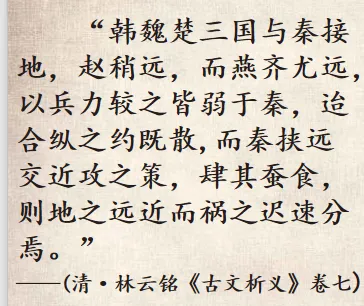 “韩魏楚三国与秦接
地，赵稍远，而燕齐尤远，
以兵力较之皆弱于秦，迨
合纵之约既散，而秦挟远
交近攻之策，肆其蚕食，
则地之远近而祸之迟速分
焉。”
——(清·林云铭《古文析义》卷七)